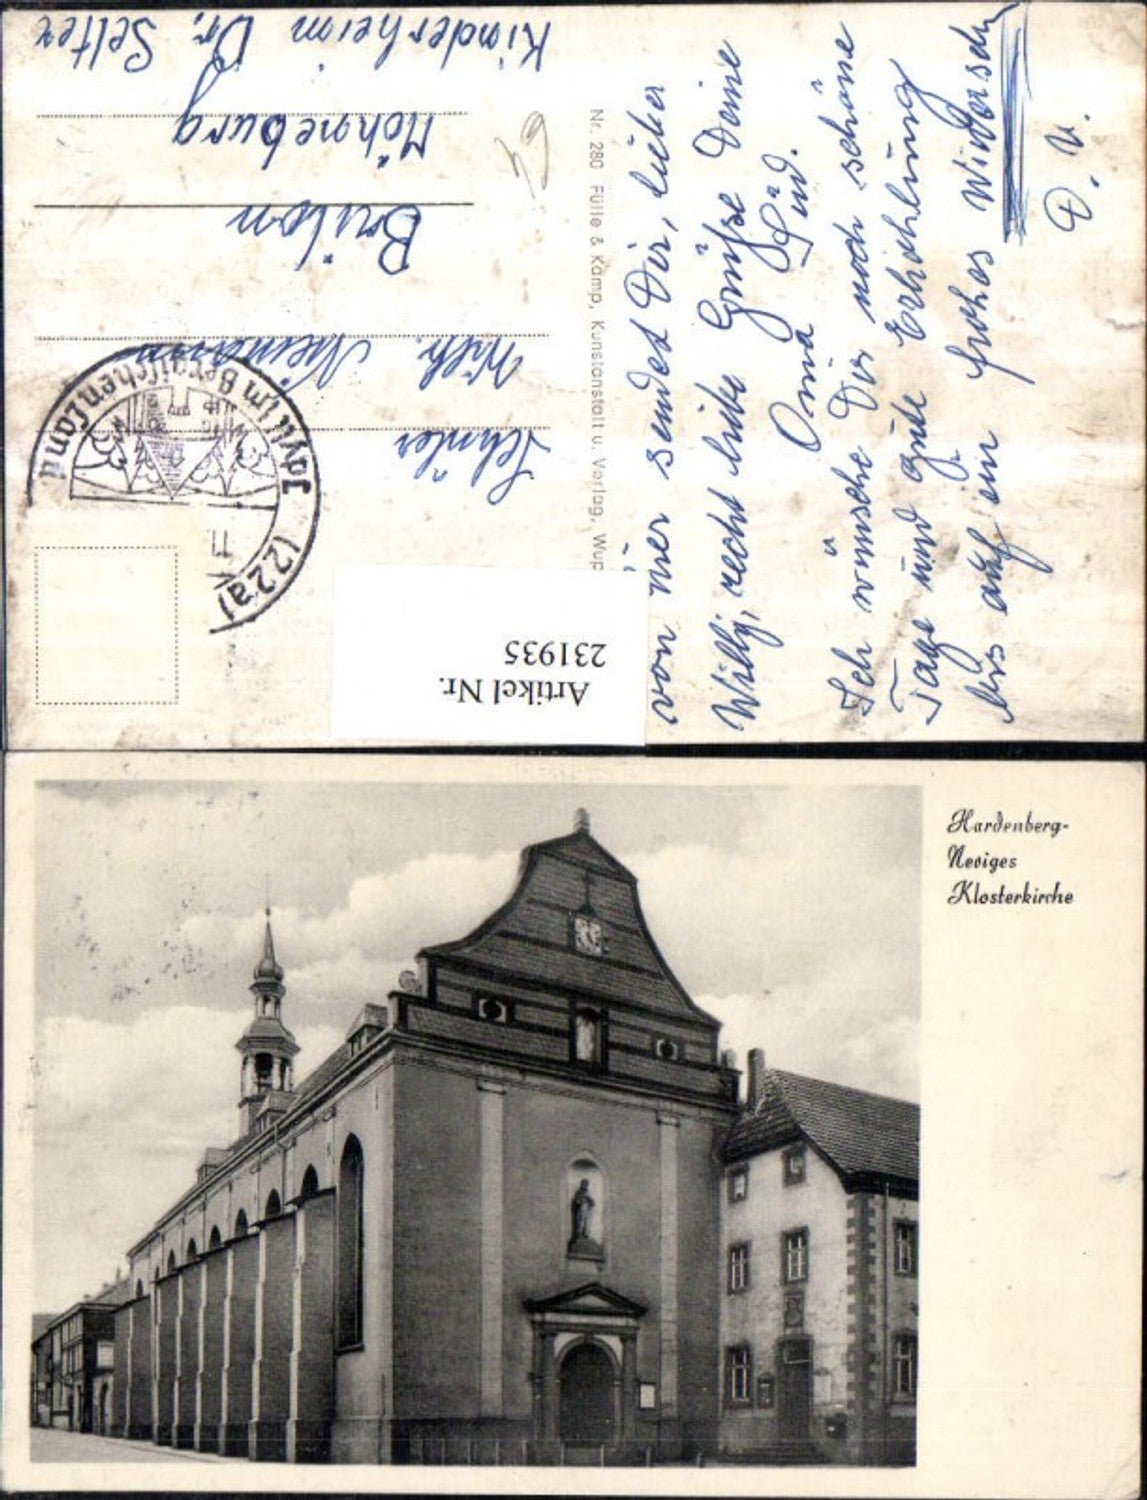 von hier sendet Dir, lieber
Willy, recht liebe Grüße Deine
Oma Lind.
Ich wünsche Dir noch schöne
Tage und gute Erhohlung
bis auf ein frohes Widersehn
D. U.
Nr. 280 Fülle & Kamp, Kunstanstalt u. Verlag, Wup
Schüler
Wilh.
Brilon
Möhneburg
Kinderheim Dr. Selter
59
(22a)
Idyll im Bergischen Land
Artikel Nr.
231935
Hardenberg-
Neviges
Klosterkirche